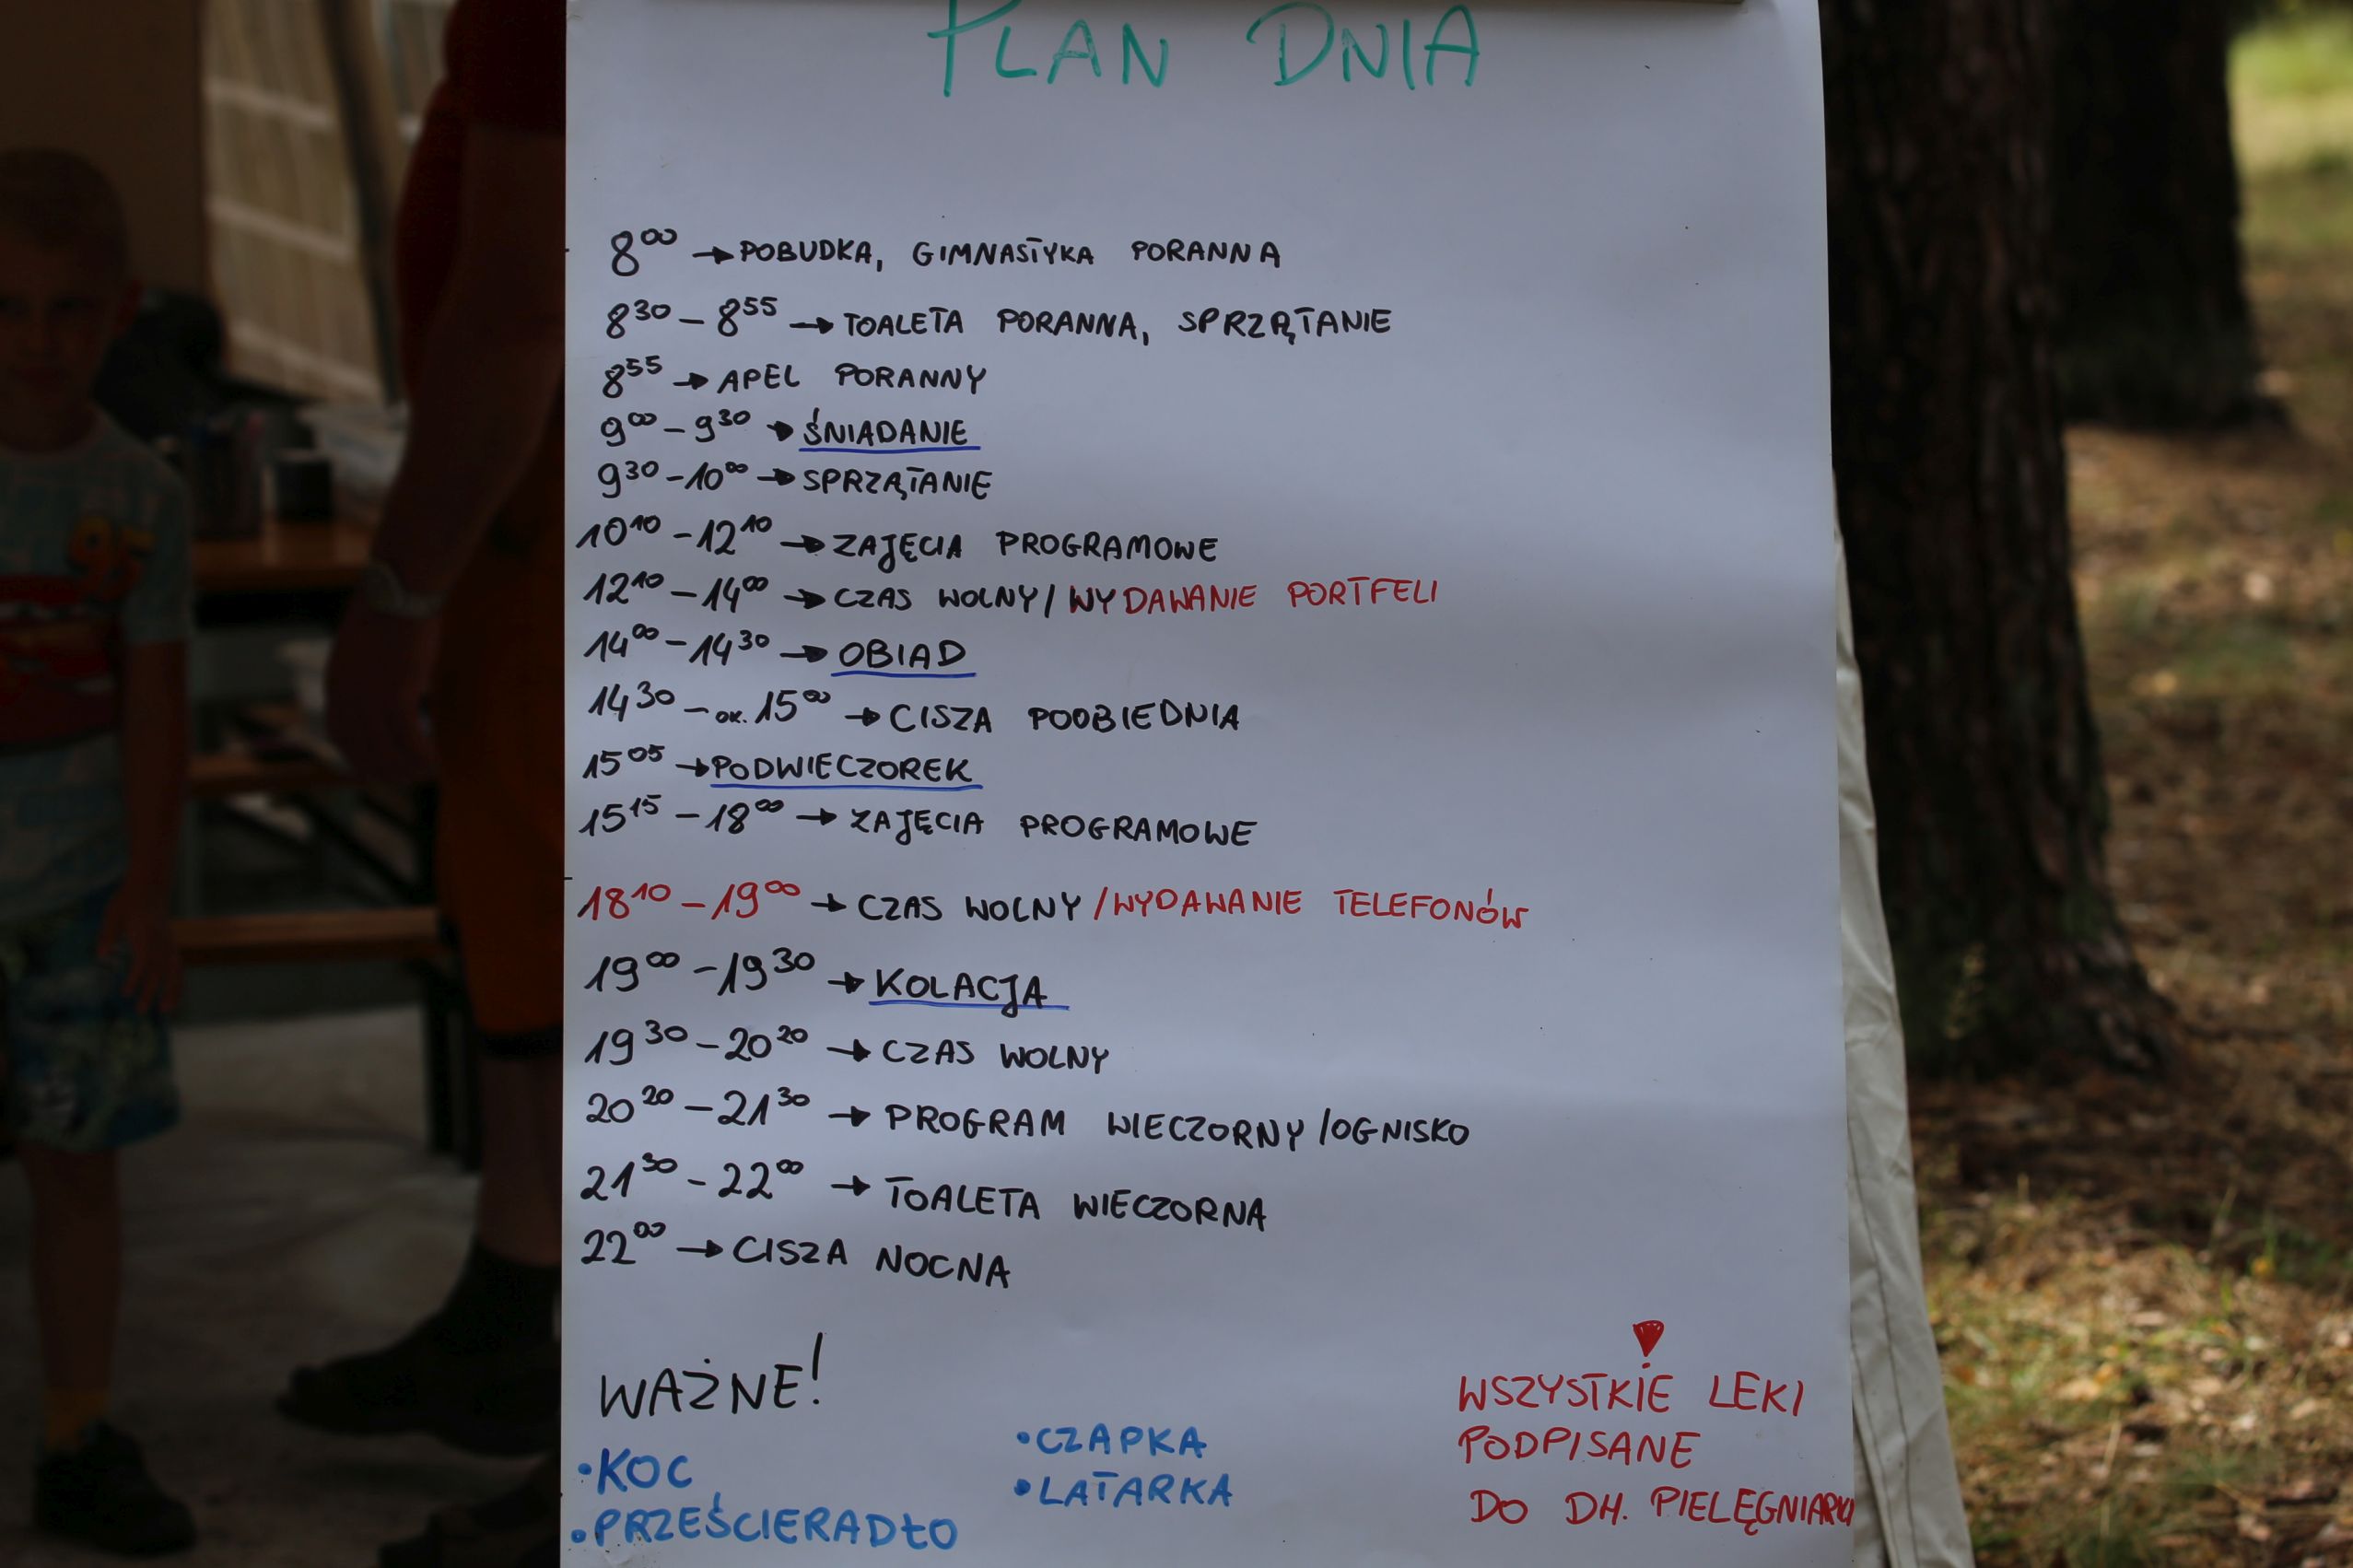 PLAN DNIA
8⁰⁰ → POBUDKA, GIMNASTYKA PORANNA
8³⁰ – 8⁵⁵ → TOALETA PORANNA, SPRZĄTANIE
8⁵⁵ → APEL PORANNY
9⁰⁰ – 9³⁰ → ŚNIADANIE
9³⁰ – 10⁰⁰ → SPRZĄTANIE
10¹⁰ – 12¹⁰ → ZAJĘCIA PROGRAMOWE
12¹⁰ – 14⁰⁰ → CZAS WOLNY / WYDAWANIE PORTFELI
14⁰⁰ – 14³⁰ → OBIAD
14³⁰ – OK. 15⁰⁰ → CISZA POOBIEDNIA
15⁰⁵ → PODWIECZOREK
15¹⁵ – 18⁰⁰ → ZAJĘCIA PROGRAMOWE
18¹⁰ – 19⁰⁰ → CZAS WOLNY / WYDAWANIE TELEFONÓW
19⁰⁰ – 19³⁰ → KOLACJA
19³⁰ – 20²⁰ → CZAS WOLNY
20²⁰ – 21³⁰ → PROGRAM WIECZORNY / OGNISKO
21³⁰ – 22⁰⁰ → TOALETA WIECZORNA
22⁰⁰ → CISZA NOCNA
WAŻNE!
• KOC
• PRZEŚCIERADŁO
• CZAPKA
• LATARKA
WSZYSTKIE LEKI
PODPISANE
DO DH. PIELĘGNIARKI
95